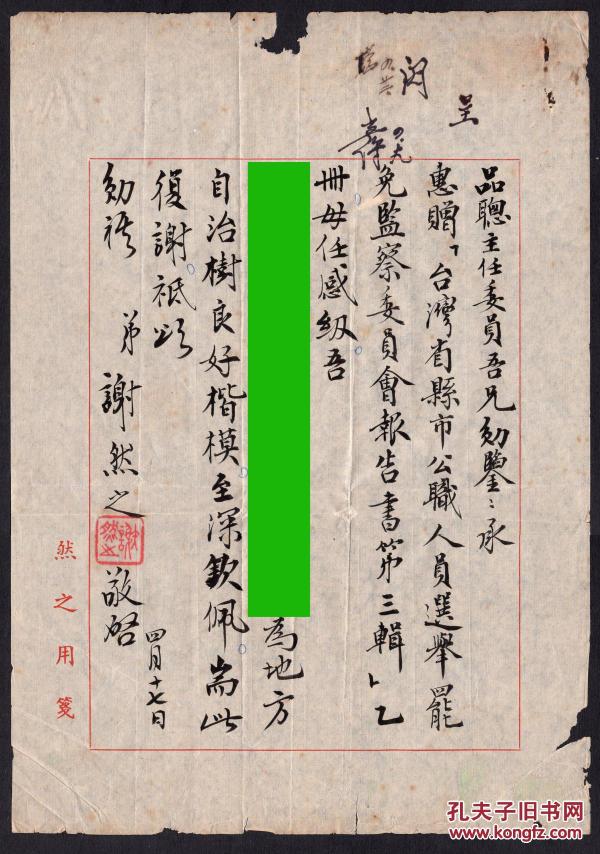 呈
閱
品聰主任委員吾兄勛鑒：承
惠贈「台灣省縣市公職人員選舉罷
免監察委員會報告書第三輯」乙
冊毋任感級吾
為地方
自治樹良好楷模至深欽佩耑此
復謝祗頌
勛祺
弟謝然之
謝然之
敬啓
四月十七日
然之用箋
孔夫子旧书网
www.kongfz.com